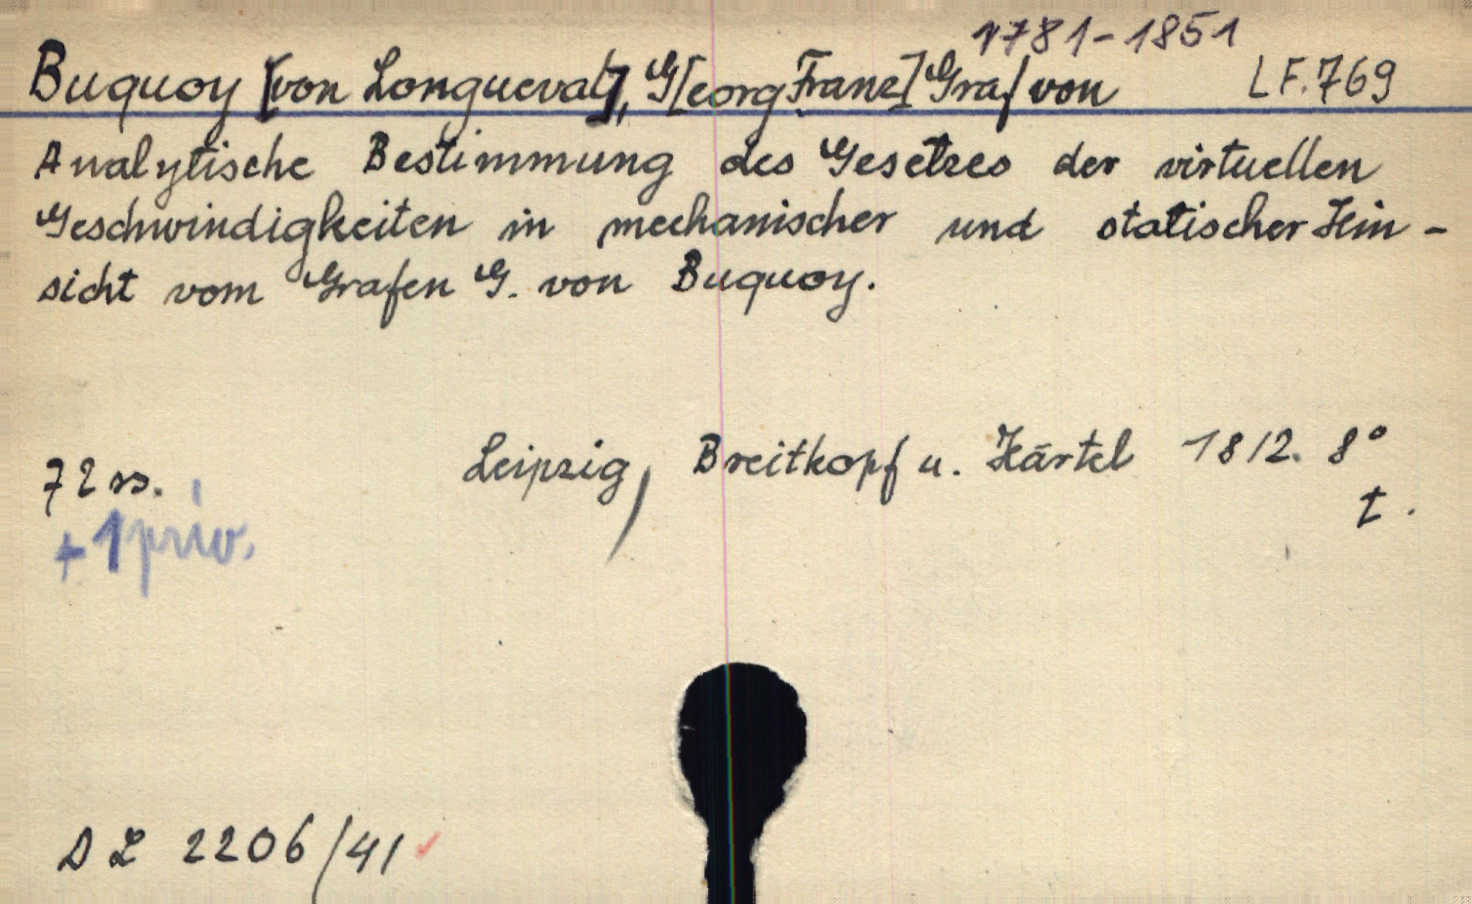 1781-1851
Buquoy [von Longueval], G[eorg Franz] Graf von LF.769
Analytische Bestimmung des Gesetzes der virtuellen
Geschwindigkeiten in mechanischer und statischer Hin-
sicht vom Grafen G. von Buquoy.
Leipzig, Breitkopf u. Härtel 1812. 8°
72 ss. t.
+1 priv.
DL 2206/41